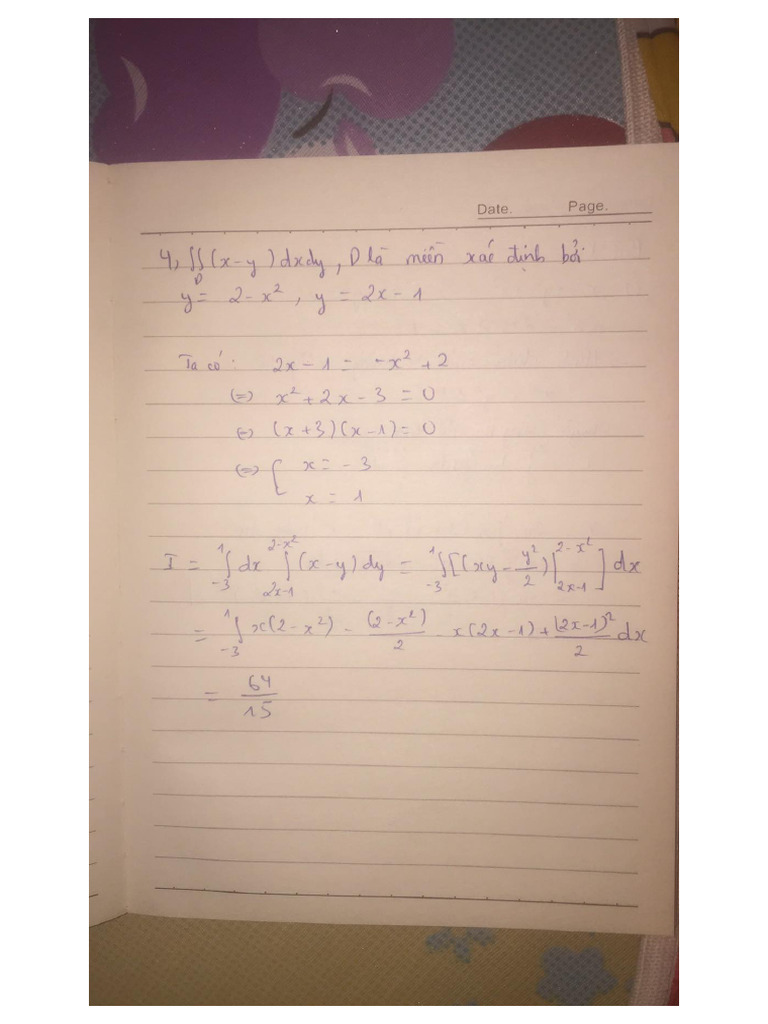 Date. Page.
4, ∬_D (x-y) dxdy, D là miền xác định bởi
y = 2-x², y = 2x-1
Ta có: 2x-1 = -x²+2
(=) x²+2x-3 = 0
(=) (x+3)(x-1)=0
(=) { x = -3
x = 1
I = ∫_{-3}^{1} dx ∫_{2x-1}^{2-x²} (x-y) dy = ∫_{-3}^{1} [(xy - y²/2)|_{2x-1}^{2-x²}] dx
= ∫_{-3}^{1} x(2-x²) - (2-x²)/2 - x(2x-1) + (2x-1)²/2 dx
= 64/15